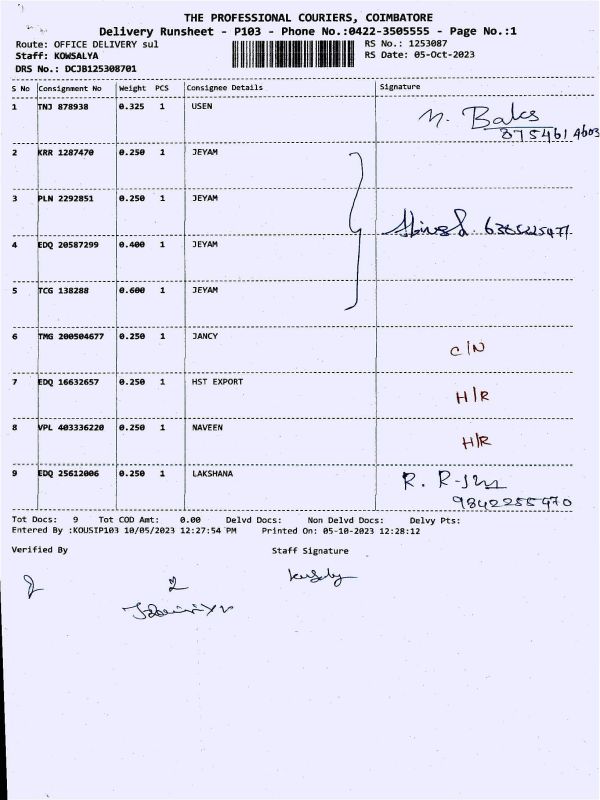 THE PROFESSIONAL COURIERS, COIMBATORE
Delivery Runsheet - P103 - Phone No.:0422-3505555 - Page No.:1
Route: OFFICE DELIVERY sul
RS No.: 1253087
Staff: KOWSALYA
RS Date: 05-Oct-2023
DRS No.: DCJB125308701
S No Consignment No Weight PCS Consignee Details Signature
1 TNJ 878938 0.325 1 USEN
8754614603
2 KRR 1287470 0.250 1 JEYAM
3 PLN 2292851 0.250 1 JEYAM
4 EDQ 20587299 0.400 1 JEYAM
5 TCG 138288 0.600 1 JEYAM
6 TMG 200504677 0.250 1 JANCY C/N
7 EDQ 16632657 0.250 1 HST EXPORT H/R
8 VPL 403336220 0.250 1 NAVEEN H/R
9 EDQ 25612006 0.250 1 LAKSHANA
9842255470
Tot Docs: 9 Tot COD Amt: 0.00 Delvd Docs: Non Delvd Docs: Delvy Pts:
Entered By :KOUSIP103 10/05/2023 12:27:54 PM Printed On: 05-10-2023 12:28:12
Verified By Staff Signature